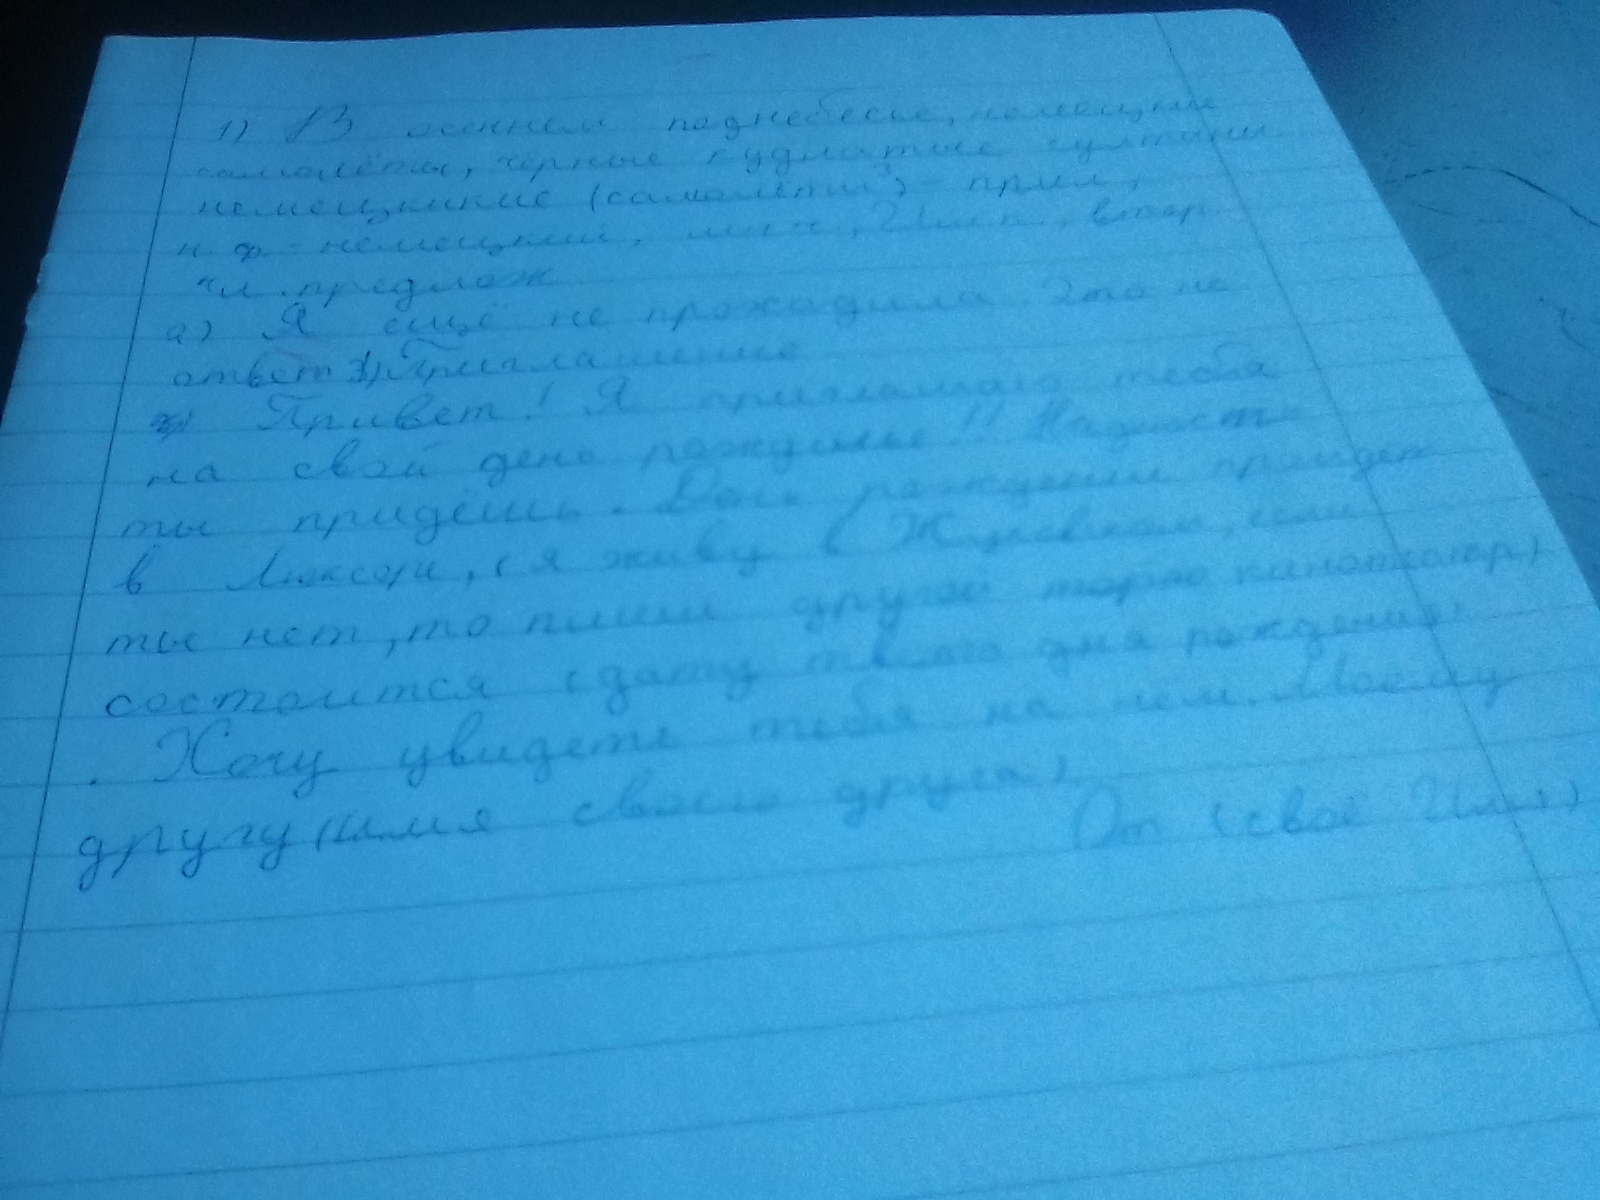 1) В осеннем поднебесье, немецкие
самолёты, чёрные кудлатые
немецкие (самолёты) - прил,
н. ф. - немецкий, мн.ч, И.п, втор
чл. предлож
2) Я ещё не проходила. Это не
ответ 3) Приглашение
Привет! Я приглашаю тебя
на свой день рожденье!!
ты придёшь. День рождении пройдёт
в Люксоре, (я живу в Жуковском, если
ты нет, то пиши другой торго кинотеатр)
состоится (дату твоего дня рождения)
. Хочу увидеть тебя на нём. Моему
другу (имя своего друга)
От (своё Имя)